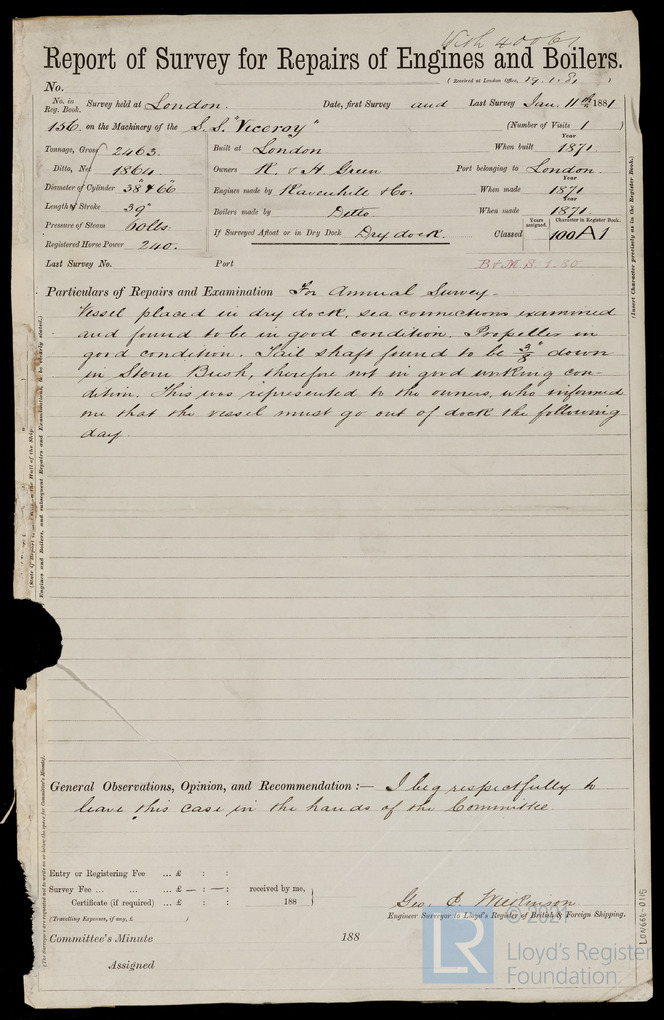 With 40061
Report of Survey for Repairs of Engines and Boilers.
(Received at London Office, 19.1.81)
No.
No. in Reg. Book. Survey held at London. Date, first Survey and Last Survey Jan. 11th 1881
156. on the Machinery of the S.S. "Viceroy" (Number of Visits 1 )
Tonnage, Gross 2463. Built at London When built Year 1871
Ditto, Net 1864. Owners R. & H. Green Port belonging to London.
Diameter of Cylinder 38" & 66" Engines made by Ravenhill & Co. When made Year 1871
Length of Stroke 39" Boilers made by Ditto When made Year 1871.
Pressure of Steam 60 lbs. If Surveyed Afloat or in Dry Dock Dry dock. Classed Years assigned. Character in Register Book. 100A1
Registered Horse Power 240.
Last Survey No. Port B&M.S. 1.80
Particulars of Repairs and Examination For Annual Survey.
Vessel placed in dry dock, sea connections examined
and found to be in good condition. Propeller in
good condition. Tail shaft found to be 3/8" down
in Stern Bush, therefore not in good working con-
dition. This was represented to the owners, who informed
me that the vessel must go out of dock the following
day.
General Observations, Opinion, and Recommendation :— I beg respectfully to
leave this case in the hands of the Committee
Entry or Registering Fee ... £ : :
Survey Fee ... ... £ — : — : received by me,
Certificate (if required) ... £ : : 188
(Travelling Expenses, if any, £ )
Geo. E. Wilkinson.
Engineer Surveyor to Lloyd's Register of British & Foreign Shipping.
Committee's Minute 188
Assigned
(Insert Character precisely as in the Register Book.)
LON660-0115
© 2021
LR
Lloyd's Register
Foundation.